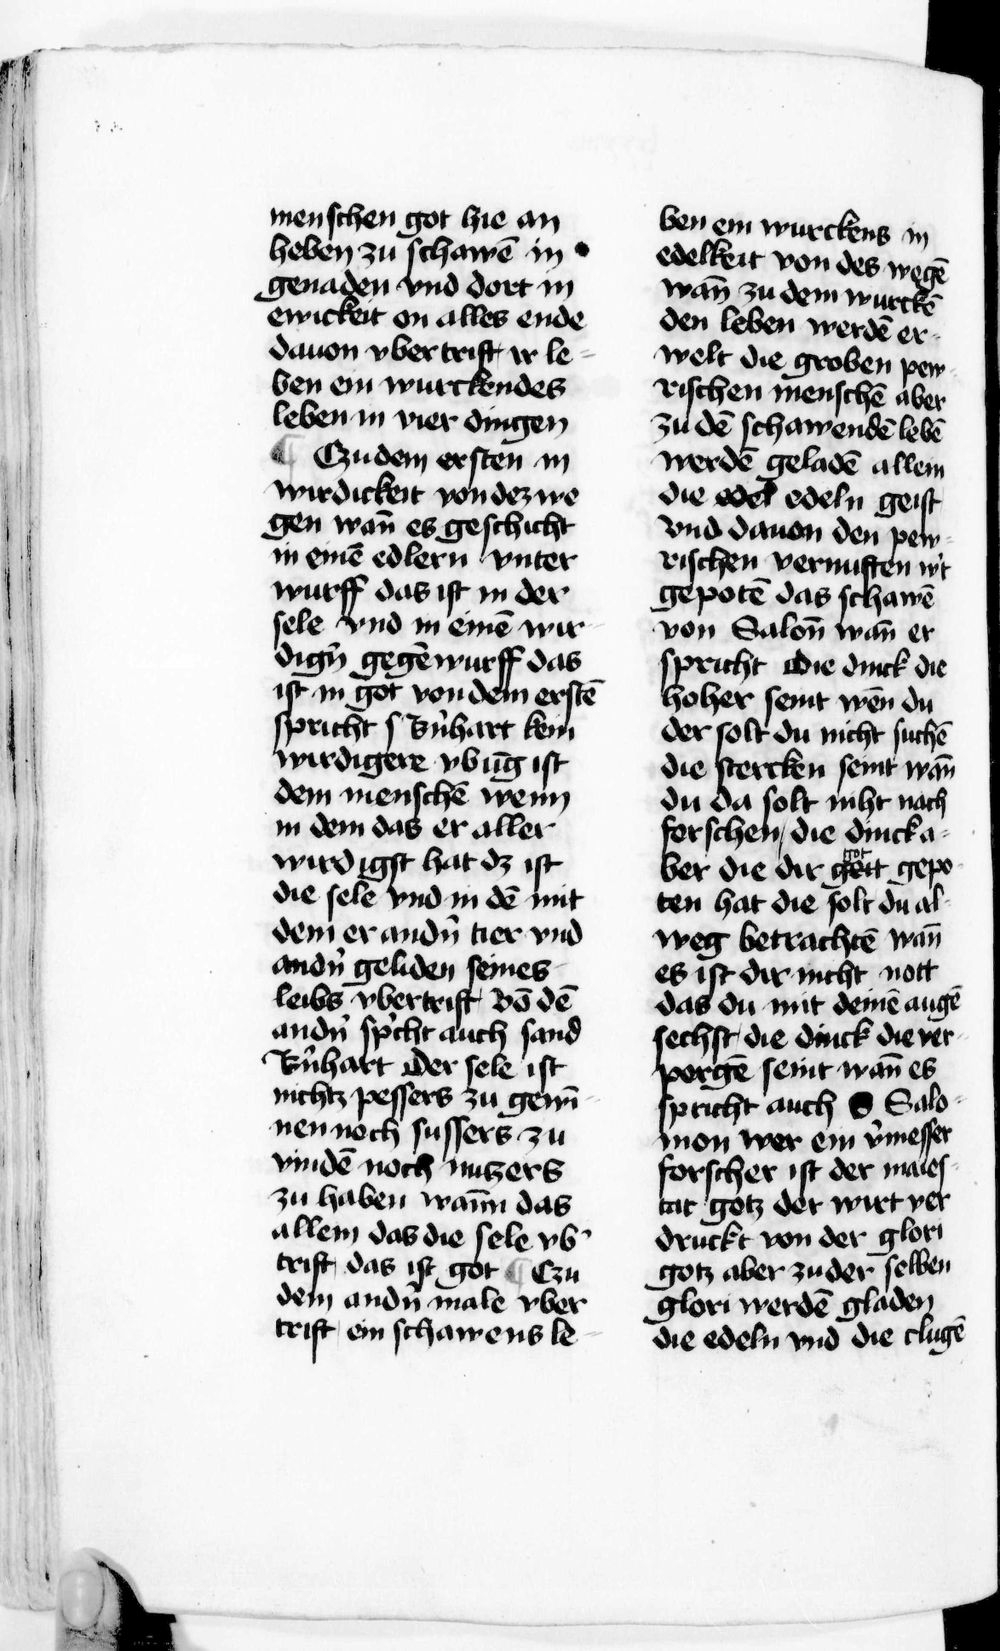 menschen got hie an
heben zu schawē in
genaden vnd dort in
ewickeit on alles ende
dauon vbertrift ir le-
ben ein wurckendes
leben in vier dingen
¶ Czu dem ersten in
wirdickeit von dez we
gen wañ es geschicht
in einē edlern vnter
wurff das ist in der
sele vnd in einē wir-
digñ gegēwurff das
ist in got von dem erstē
spricht s Bñhart kein
wirdigere vbūg ist
dem menschē wenn
in dem das er aller
wirdigst hat dz ist
die sele vnd in dē mit
dem er andñ tier vnd
andñ geliden seines
leibs vbertrift Vō dē
andñ sp'cht auch sand
Bñhart Der sele ist
nichtz pessers zu gewī-
nen noch sussers zu
vindē noch nutzers
zu haben wann̄ das
allein das die sele vb'
trift das ist got ¶ Czu
dem andñ male vber
trift ein schawens le-
ben ein wurckens in
edelkeit von des wegē
wañ zu dem wurckē
den leben werdē er-
welt die groben pew-
rischen menschē aber
zu dē schawendē lebē
werdē geladē allein
die edel edeln geist
vnd dauon den pew-
rischen vernuften w't
gepotē das schawē
von Saloñ wañ er
spricht Die dinck die
hoher seint wēn du
der solt du nicht suchē
die stercken seint wañ
du da solt niht nach
forschen die dinck a-
ber die dir geit got gepo
ten hat die solt du al-
weg betrachtē wañ
es ist dir nicht nott
das du mit deinē augē
sechst die dinck die ver-
porgē seint wañ es
spricht auch S Salo-
mon wer ein v'messer
forscher ist der maies-
tat gotz der wirt ver
druckt von der glori
gotz aber zu der selben
glori werdē gladen
die edeln vnd die clugē